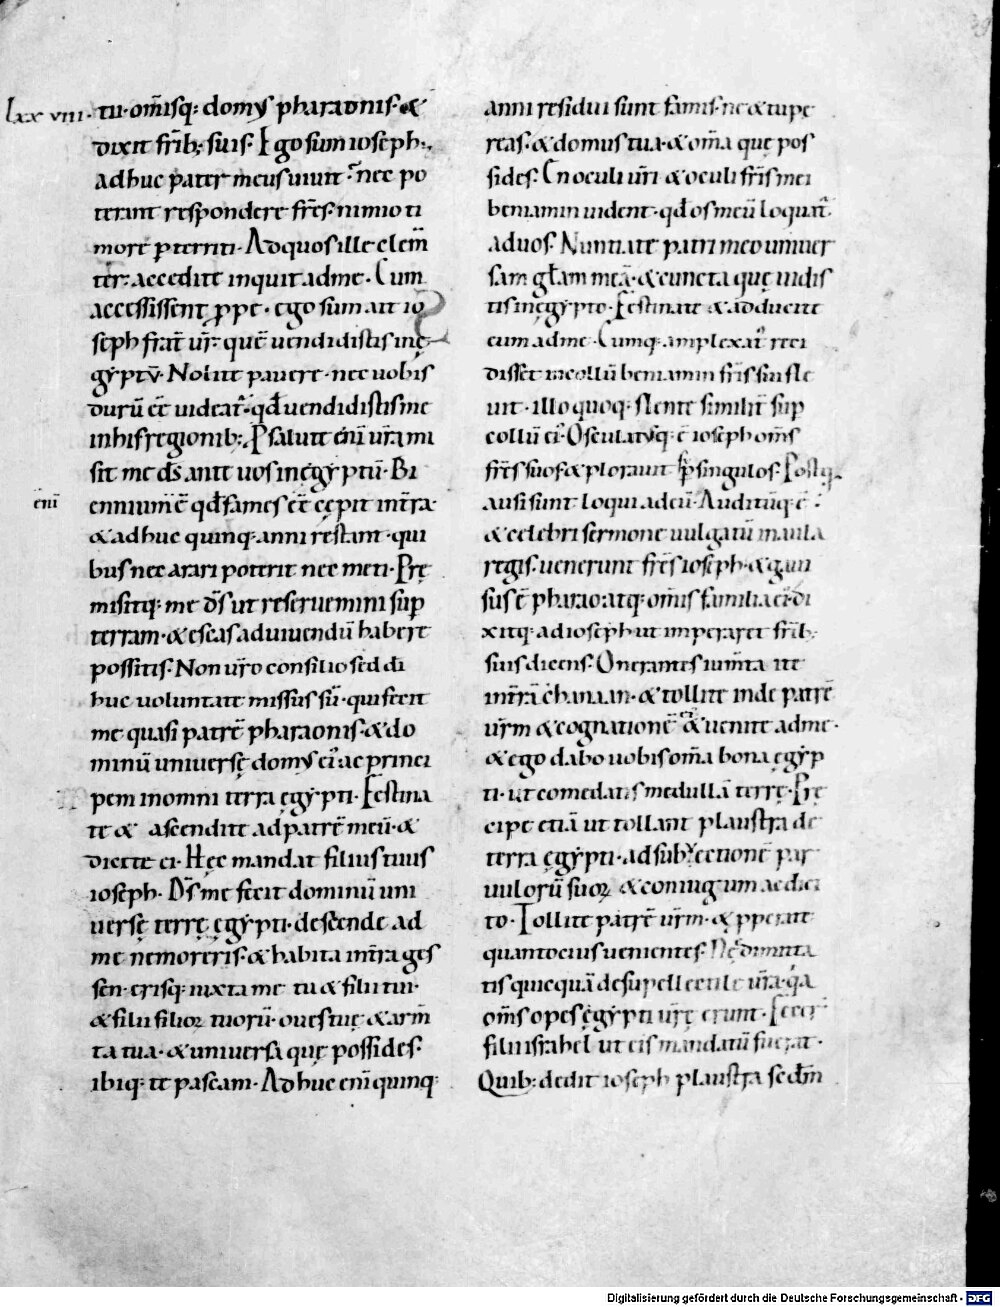 lxxviii.
tu· om̄isq; domꝰ pharaonis· &
dixit fr̄ib; suis· Ego sum ioseph·
adhuc pater meus uiuit· nec po
terant respondere fr̄es· nimio ti
more ꝑterriti· Ad quos ille clem̄
ter· accedite inquit ad me· Cum
accessissent ꝓpe· ego sum ait io
seph frat̄ ur̄· quē uendidistis in ę
gyptū· Nolite pauere· nec uobis
durū eē uideat᷑· qđ uendidistis me
in his regionib;· P salute enī ur̄a mi
sit me ds̄ ante uos in ęgyptū· Bi
enī
ennium ē qđ fames eē cępit in tr̄a·
& adhuc quinq; anni restant· qui
bus nec arari poterit nec meti· Prę
misitq; me ds̄ ut reseruemini sup̄
terram· & escas ad uiuendū habere
possitis· Non ur̄o consilio sed di
huc uoluntate missus sū· qui fecit
me quasi patrē pharaonis· & do
minū uniuersę domꝰ ei᾽ ac princi
pem in omni terra ęgypti· Festina
te & ascendite ad patrē meū· &
dicete ei· Hęc mandat filius tuus
ioseph· Ds̄ me fecit dominū uni
uersę terrę ęgypti· descende ad
me ne moreris· & habita in tr̄a ges
sen· erisq; iuxta me tu & filii tui·
& filii filioꝝ tuorū· oues tuę & arm̄
ta tua· & uniuersa quę possides·
ibiq; te pascam· Adhuc enī quinq;
anni residui sunt famis· ne & tu pe
reas· & domus tua· & om̄a quę pos
sides· En oculi ur̄i & oculi fr̄is mei
beniamin uident· qđ os meū loquat᷑
ad uos· Nuntiate patri meo uniuer
sam gl̄am meā· & cuncta quę uidis
tis in ęgypto· Festinate & adducite
eum ad me· Cumq; amplexat᷑ reci
disset in collū beniamin fr̄is sui fle
uit· illo quoq; flente similit̄ sup̄
collū ei᾽· Osculatusq; ē ioseph om̄s
fr̄es suos· & plorauit sup̄ singulos· Post q
ausi sunt loqui ad eū· Auditūq; ē·
& celebri sermone uulgatū in aula
regis· uenerunt fr̄es ioseph· & gaui
sus ē pharao· atq; om̄is familia ei᾽· di
xitq; ad ioseph ut imperaret fr̄ib;
suis dicens· Onerantes ium̄ta ite
in tr̄ā chanaan· & tollite inde patrē
ur̄m & cognationē & uenite ad me·
& ego dabo uobis om̄a bona ęgyp
ti· ut comedatis medullā terrę· Prę
cipe etiā ut tollant plaustra de
terra ęgypti· ad subuectionē par
uulorū suoꝝ & coniugum ac dici
to· Tollite patrē ur̄m· & ꝓperate
quantocius uenientes· Nec dimitta
tis quicquā de supellectile ur̄a· q̄a
om̄s opes ęgypti ur̄ę erunt· Fecer̄
filii israhel ut eis mandatū fuerat·
Quib; dedit ioseph plaustra secdm̄
Digitalisierung gefördert durch die Deutsche Forschungsgemeinschaft - DFG